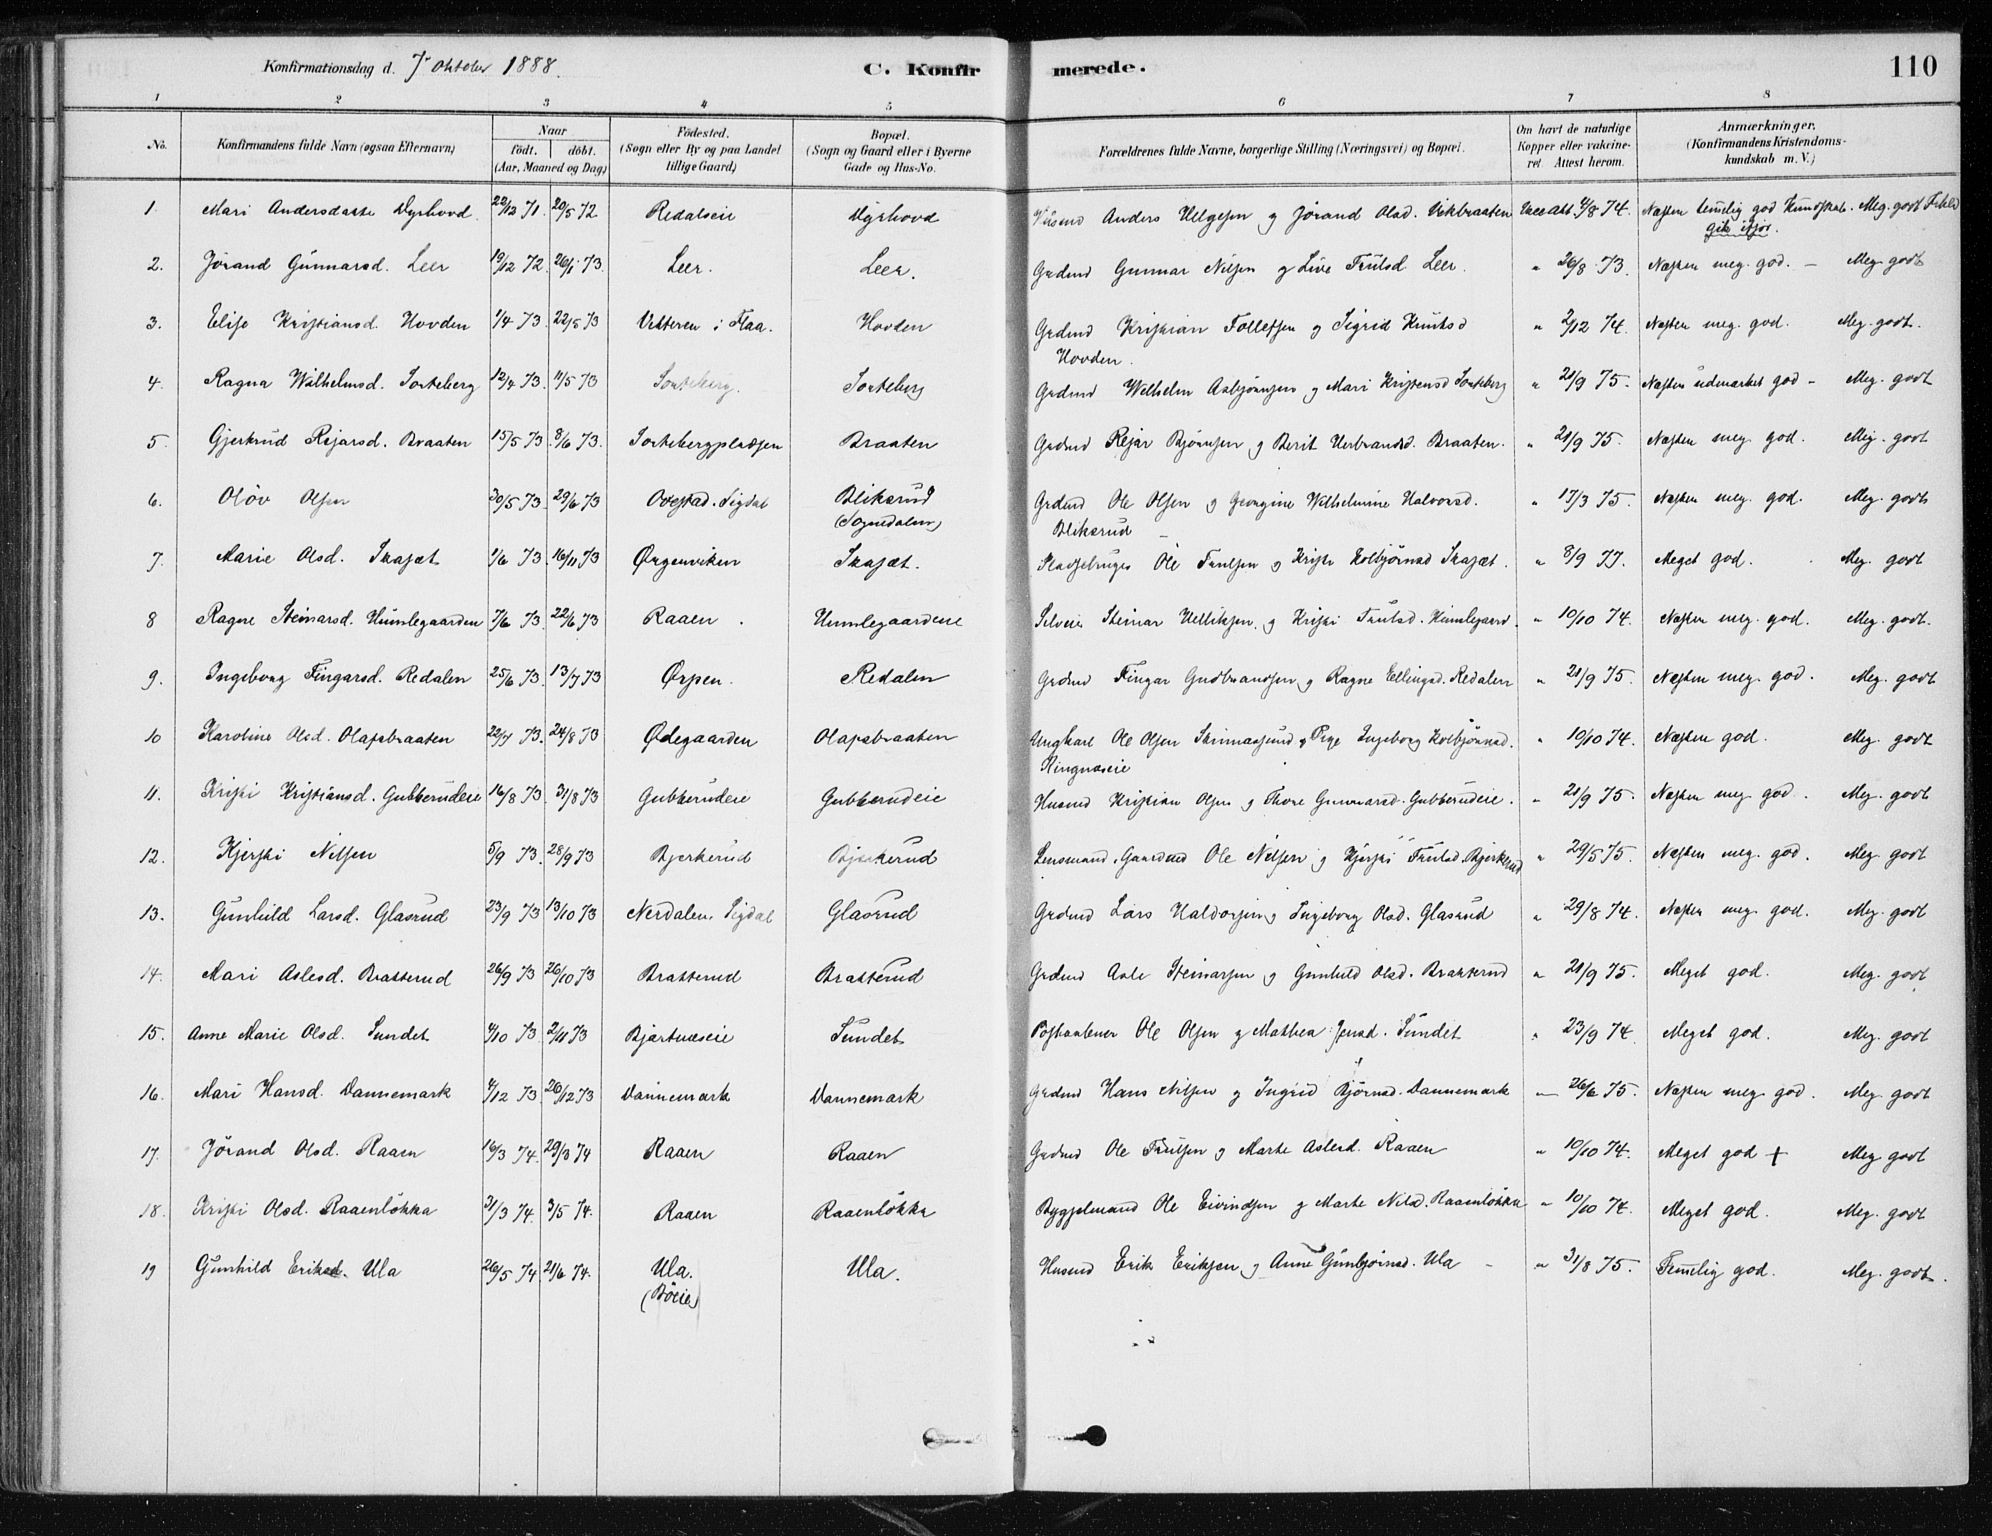 Konfirmationsdag d. 7de Oktober 1888. C. Konfirmerede. 110
1 2 3 4 5 6 7 8
No. Konfirmandens fulde Navn (ogsaa Efternavn) Naar födt. döbt. (Aar, Maaned og Dag) Födested. (Sogn eller By og paa Landet tillige Gaard) Bopæl. (Sogn og Gaard eller i Byerne Gade og Hus-No. Forældrenes fulde Navne, borgerlige Stilling (Næringsvei) og Bopæl. Om havt de naturlige Kopper eller vakcineret Attest herom. Anmærkninger. (Konfirmandens Kristendomskundskab m. V.)
1. Mari Andersdatte Dyrhovd 22/12 71. 20/5 72 Redalseie Dyrhovd Husmd Anders Helgesen og Jörand Olsd. Vikbraaten Vacc Att. 4/8 74. Næsten temelig god Kundskab. Meg. godt Forhold
gik ifjor.
2. Jörand Gunnarsd. Leer 19/12 72. 26/1 73. Leer. Leer. Grdmd Gunnar Nilsen og Live Trulsd Leer. " 26/8 73. Næsten meg. god. — Meg. godt
3. Elise Kristiansd. Hovden 1/4 73. 22/5 73 Vesteren i Flaa. Hovden Grdmd Kristian Tollefsen og Sigrid Knutsd " 2/12 74. Næsten meg. god. Meg. godt.
Hovden.
4. Ragna Wilhelmsd. Sorteberg 12/4 73. 11/5 73 Sorteberg. Sorteberg Grdmd Wilhelm Asbjörnsen og Mari Kristensd Sorteberg " 21/9 75. Næsten udmærket god - Meg. godt
5. Gjertrud Reiarsd. Braaten 15/5 73. 8/6 73. Sortebergpladsen Braaten Grdmd Reiar Bjönnsen og Berit Herbrandsd. Braaten. " 21/9 75. Næsten meg. god. Meg. godt
6. Olöv Olsen 30/5 73. 29/6 73 Ovestad. Sigdal Bliksrud Grdmd Ole Olsen og Georgine Wilhelmine Halvorsd. " 17/3 75. Næsten meg. god. Meg. godt
(Sognedalen) Bliksrud
7. Marie Olsd. Skajæt 1/6 73. 16/11 73 Ørgenviken Skajæt. Pladsebruger Ole Trulsen og Kristi Kolbjörnsd Skajæt. " 8/9 77. Meget god. Meg. godt
8 Ragne Steinarsd. Humlegaarden 7/6 73. 22/6 73 Raaen. Humlegaardeie Selveie Steinar Helliksen og Kristi Trulsd. Humlegaard. " 10/10 74. Næsten meg. god. Meg. godt.
9. Ingeborg Fingarsd. Redalen 25/6 73. 13/7 73 Ørpen. Redalen Grdmd Fingar Gudbrandsen og Ragne Ellingsd. Redalen " 21/9 75. Næsten meg. god. Meg. godt
10 Karoline Olsd. Olapsbraaten 22/7 73. 24/8 73 Ødegaarden Olapsbraaten Ungkarl Ole Olsen Skrimasund og Pige Ingeborg Kolbjörnsd. " 10/10 74. Næsten god. Meg. godt
Ringnæseie
11. Kristi Kristiansd. Gubberudeie 16/8 73. 31/8 73 Gubberudeie Gubberudeie Husmd Kristian Olsen og Thore Gunnarsd. Gubberudeie. " 21/9 75. Næsten meg. god. Meg. godt
12. Kjersti Nilsen 5/9 73. 28/9 73 Bjerkerud Bjerkerud Lensmand, Gaardmd Ole Nilsen og Kjersti Trulsd. Bjerkerud " 29/5 75. Næsten meg. god. Meg. godt
13. Gunhild Larsd. Glasrud 23/9 73 13/10 73 Nerdalen, Sigdal Glasrud Grdmd Lars Haldorsen og Ingeborg Olsd. Glasrud " 29/8 74. Næsten meg. god. Meg. godt
14. Mari Aslesd. Bratterud 26/9 73 26/10 73 Bratterud Bratterud Grdmd Asle Steinarsen og Gunhild Olsd. Bratterud " 21/9 75. Meget god. Meg. godt
15. Anne Marie Olsd. Sundet 4/10 73 2/11 73 Bjertnæseie Sundet Postaabner Ole Olsen og Mathea Jensd. Sundet " 23/9 74 Meget god. Meg. godt
16. Mari Hansd. Dannemark 4/12 73. 26/12 73 Dannemark Dannemark Grdmd Hans Nilsen og Ingrid Björnsd. Dannemark — 26/6 75. Næsten meg god. Meg. godt
17. Jörand Olsd. Raaen 16/3 74. 29/3 74 Raaen Raaen Grdmd Ole Trulsen og Marte Aslesd. Raaen " 10/10 74. Meget god + Meg godt
18. Kristi Olsd. Raaenlökka 31/3 74. 3/5 74. Raaen Raaenlökka Byggselmand Ole Eivindsen og Marte Nilsd. Raaenlökka " 10/10 74. Meget god. Meg. godt
19 Gunhild Eriksd. Ula 26/5 74 21/6 74. Ula. Ula. Husmd Erik Eriksen og Anne Gunbjörnsd. Ula - " 31/8 75. Temelig god. Meg. godt.
(Böeie)